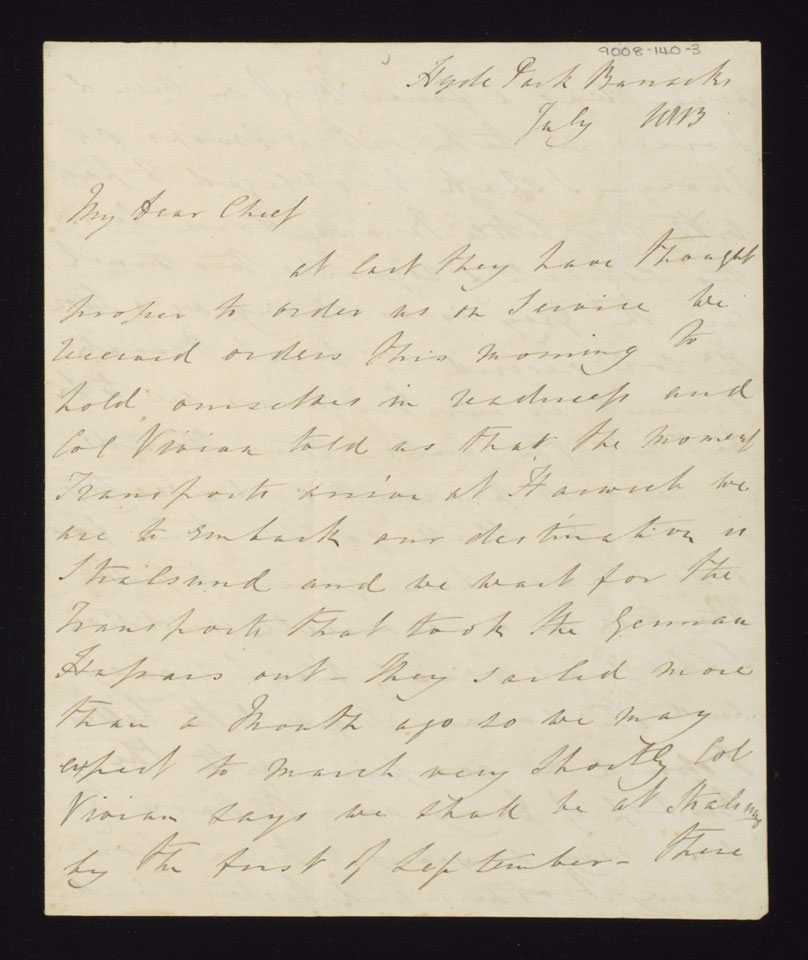 9008-140-3
Hyde Park Barracks
July 1813
My Dear Chief
at last they have thought
proper to order us on Service We
received orders this morning to
hold ourselves in readiness and
Col Vivian told us that the moment
Transports arrive at Harwich we
are to embark our destination is
Stralsund and we wait for the
Transports that took the German
Hussars out - they sailed more
than a Month ago so we may
expect to march very shortly Col
Vivian says we shall be at Stralsund
by the first of September - there